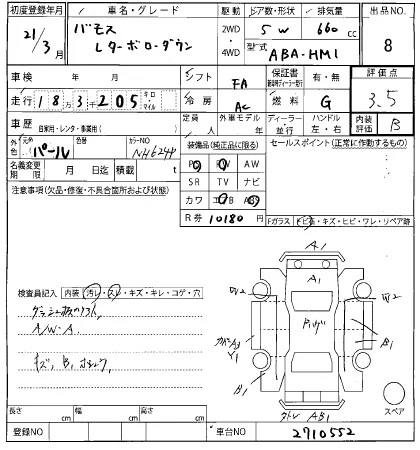 初度登録年月 車名・グレード 駆動 ドア数・形状 排気量 出品NO.
21/3月 バモス Lターボローダウン 2WD・4WD 5 W 660 cc 8
型式 ABA-HM1
車検 年 月 シフト FA 保証書 有・無 評価点
走行 18万3千205 キロ・マイル 冷房 AC 燃料 G 3.5
車歴 自家用・レンタ・事業用( ) 定員 人 外車モデル 年 ディーラー・並行 ハンドル 左・右 内装評価 B
外色 元色 パール 色替 カラーNO NH624P 装備品(純正品に限る) セールスポイント(正常に動作するもの)
名義変更期限 月 日迄 積載 t PS PW AW
注意事項(欠品・修復・不具合箇所および状態) SR TV ナビ
カワ エアB AB
R券 10180 円 Fガラス トビ石・キズ・ヒビ・ワレ・リペア跡
検査員記入 内装 汚レ・スレ・キズ・キレ・コゲ・穴
A/W・A
キズ, B,
A1
A1
W2
W2
A3
Y1
B1
B1
AB1
スペア
長さ cm 幅 cm 高さ cm
登録NO 車台NO 2710552